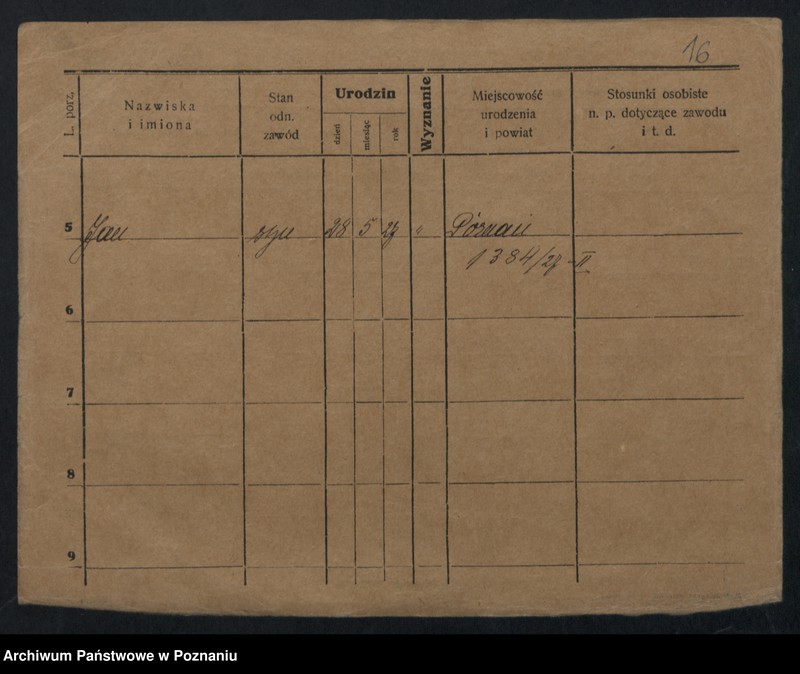 16
L. porz.
Nazwiska
i imiona
Stan
odn.
zawód
Urodzin
dzień
miesiąc
rok
Wyznanie
Miejscowość
urodzenia
i powiat
Stosunki osobiste
n. p. dotyczące zawodu
i t. d.
5 Jan syn 28 5 27 " Poznań
1384/27 - II
6
7
8
9
Archiwum Państwowe w Poznaniu